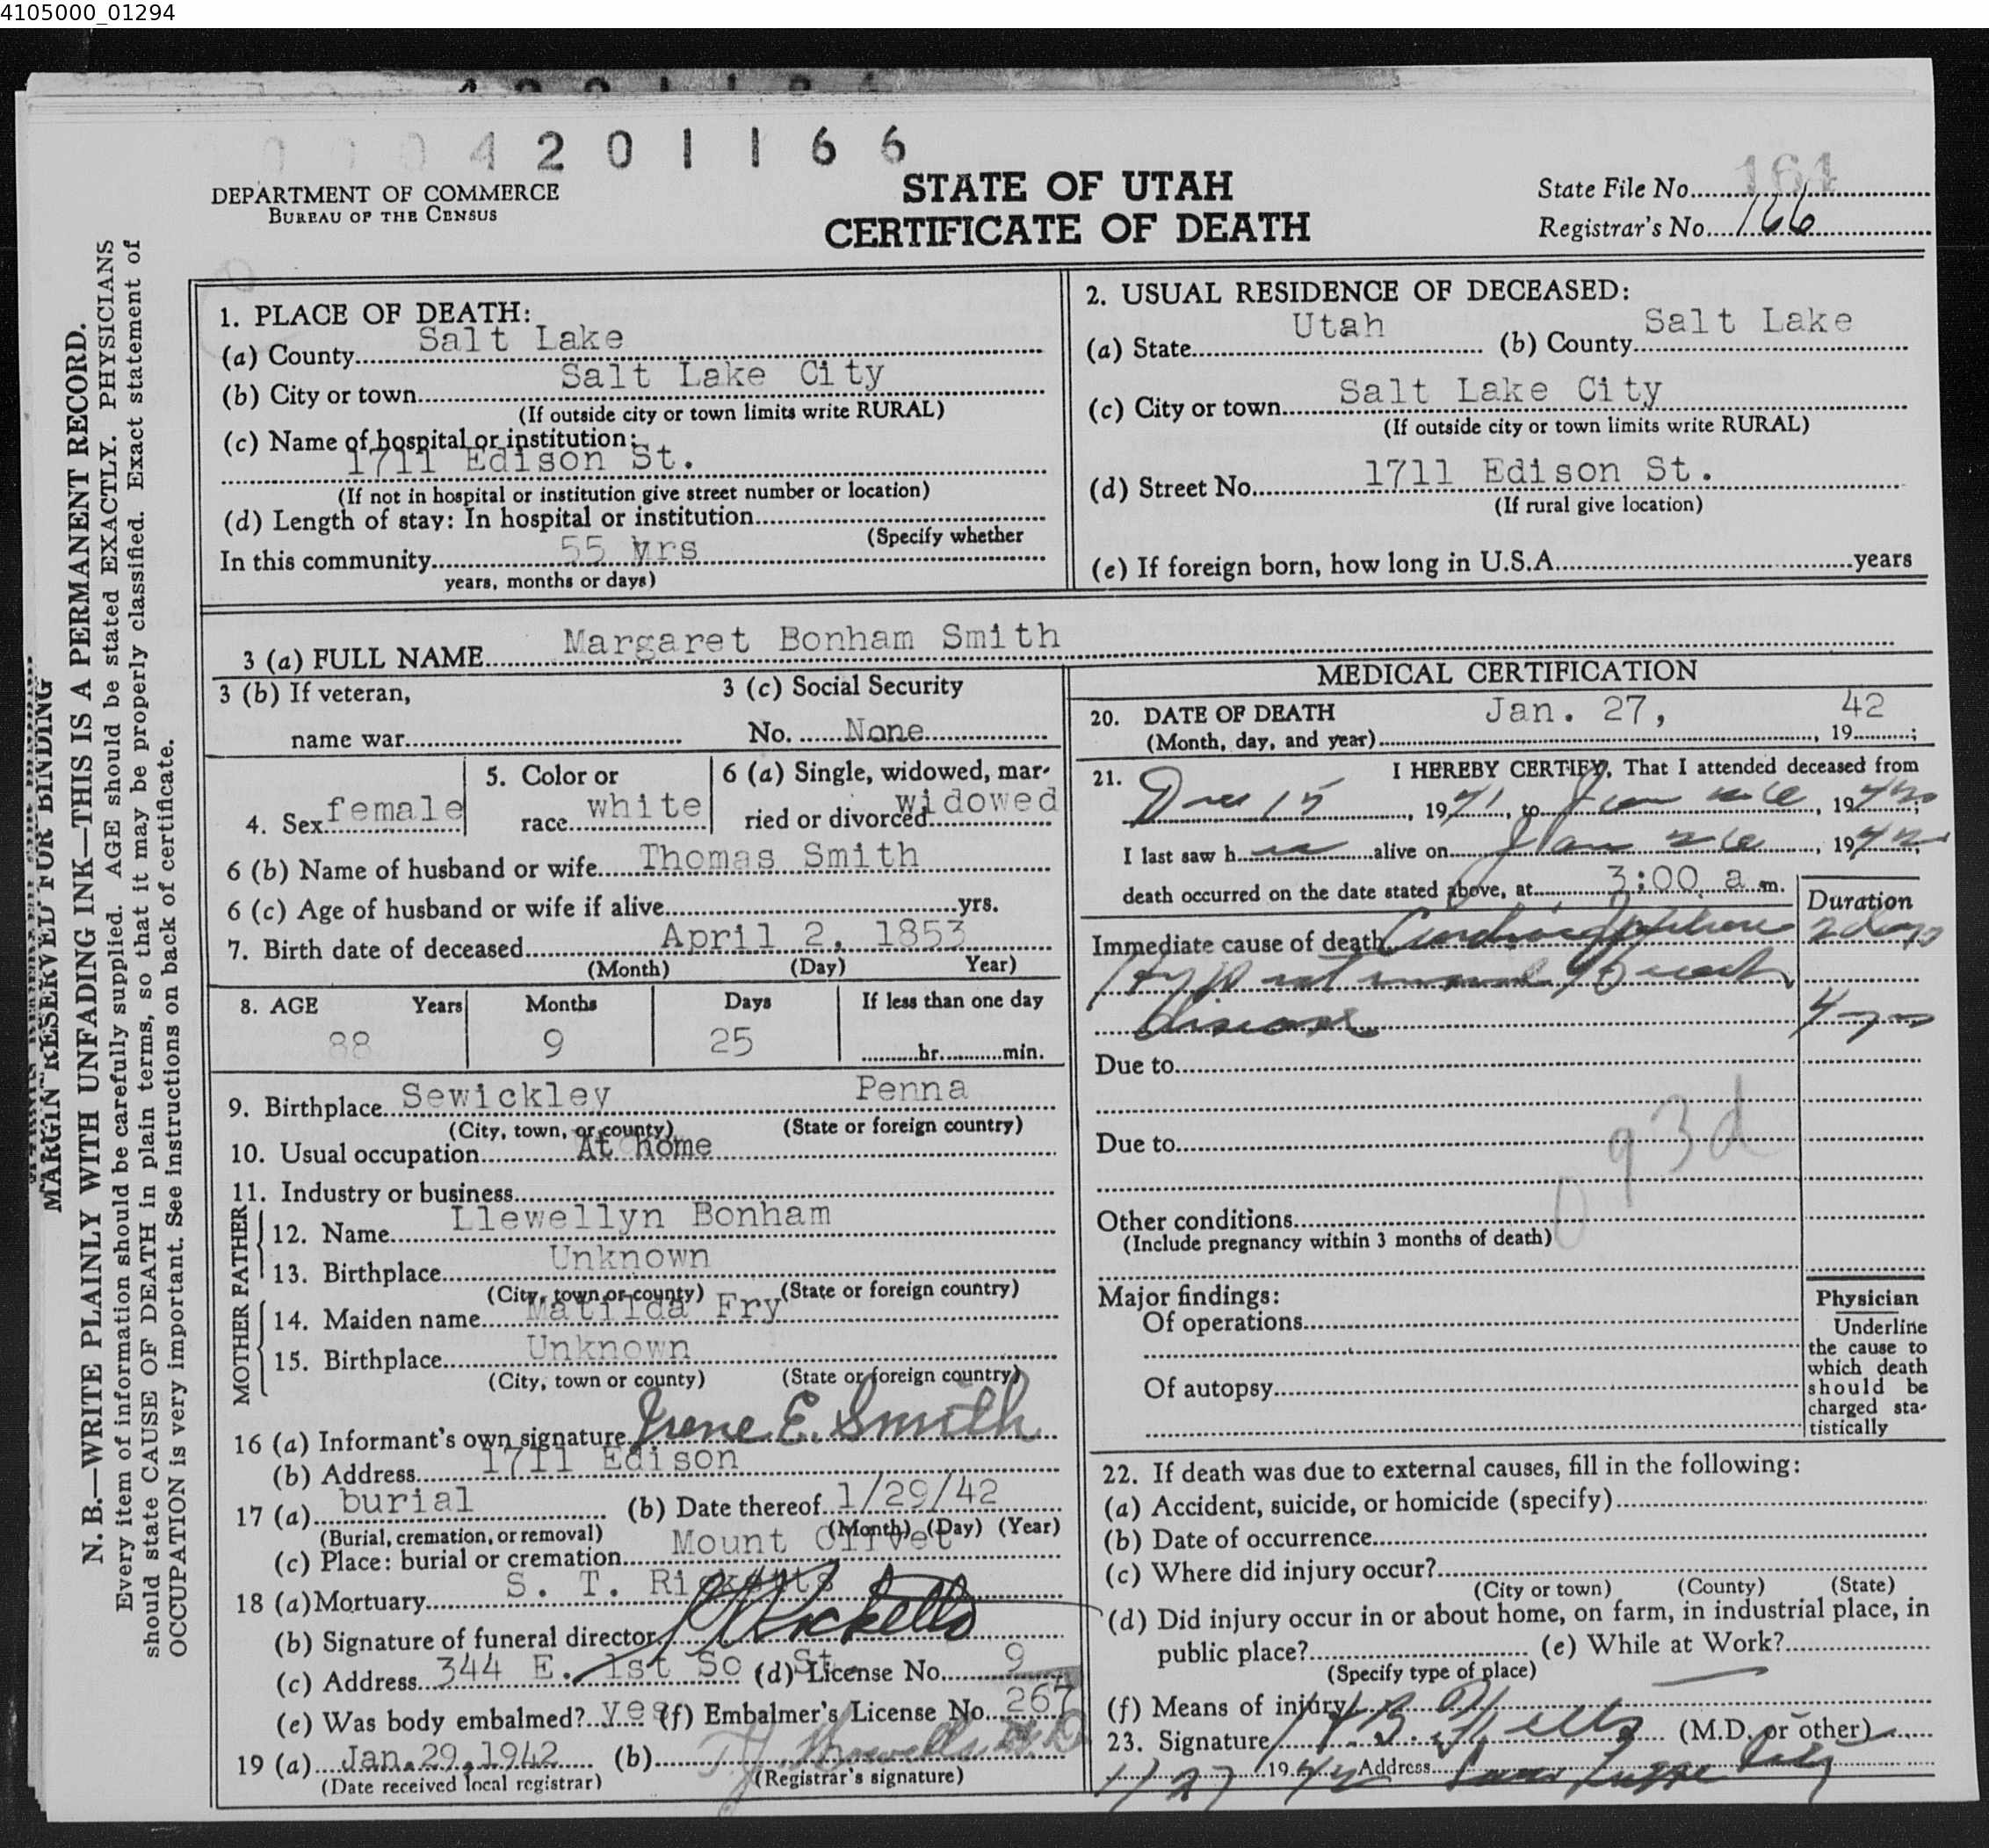 4105000_01294
0004201166
DEPARTMENT OF COMMERCE
BUREAU OF THE CENSUS
STATE OF UTAH
CERTIFICATE OF DEATH
State File No. 164
Registrar's No. 166
MARGIN RESERVED FOR BINDING
N. B.—WRITE PLAINLY WITH UNFADING INK—THIS IS A PERMANENT RECORD.
Every item of information should be carefully supplied. AGE should be stated EXACTLY. PHYSICIANS
should state CAUSE OF DEATH in plain terms, so that it may be properly classified. Exact statement of
OCCUPATION is very important. See instructions on back of certificate.
1. PLACE OF DEATH:
(a) County Salt Lake
(b) City or town Salt Lake City
(If outside city or town limits write RURAL)
(c) Name of hospital or institution:
1711 Edison St.
(If not in hospital or institution give street number or location)
(d) Length of stay: In hospital or institution
(Specify whether
In this community 55 yrs
years, months or days)
2. USUAL RESIDENCE OF DECEASED:
(a) State Utah (b) County Salt Lake
(c) City or town Salt Lake City
(If outside city or town limits write RURAL)
(d) Street No. 1711 Edison St.
(If rural give location)
(e) If foreign born, how long in U.S.A. years
3 (a) FULL NAME Margaret Bonham Smith
3 (b) If veteran, 3 (c) Social Security
name war No. None
4. Sex female 5. Color or race white 6 (a) Single, widowed, married or divorced widowed
6 (b) Name of husband or wife Thomas Smith
6 (c) Age of husband or wife if alive yrs.
7. Birth date of deceased April 2, 1853
(Month) (Day) Year)
8. AGE Years Months Days If less than one day
88 9 25 hr. min.
9. Birthplace Sewickley Penna
(City, town, or county) (State or foreign country)
10. Usual occupation At home
11. Industry or business
FATHER
12. Name Llewellyn Bonham
13. Birthplace Unknown
(City, town or county) (State or foreign country)
MOTHER
14. Maiden name Matilda Fry
15. Birthplace Unknown
(City, town or county) (State or foreign country)
16 (a) Informant's own signature Irene E. Smith
(b) Address 1711 Edison
17 (a) burial (b) Date thereof 1/29/42
(Burial, cremation, or removal) (Month) (Day) (Year)
(c) Place: burial or cremation Mount Olivet
18 (a) Mortuary S. T. Ricketts
(b) Signature of funeral director Ricketts
(c) Address 344 E. 1st So St. (d) License No. 9
(e) Was body embalmed? yes (f) Embalmer's License No. 267
19 (a) Jan. 29, 1942 (b)
(Date received local registrar) (Registrar's signature)
MEDICAL CERTIFICATION
20. DATE OF DEATH Jan. 27, 42
(Month, day, and year) , 19 ;
21. I HEREBY CERTIFY, That I attended deceased from
Dec 15, 1941, to Jan 26, 1942;
I last saw her alive on Jan 26, 1942;
death occurred on the date stated above, at 3:00 a m.
Duration
Immediate cause of death Cardiac 2 days
disease 4 yrs
Due to
Due to
093d
Other conditions
(Include pregnancy within 3 months of death)
Major findings:
Of operations
Of autopsy
Physician
Underline
the cause to
which death
should be
charged sta-
tistically
22. If death was due to external causes, fill in the following:
(a) Accident, suicide, or homicide (specify)
(b) Date of occurrence
(c) Where did injury occur?
(City or town) (County) (State)
(d) Did injury occur in or about home, on farm, in industrial place, in
public place? (e) While at Work?
(Specify type of place)
(f) Means of injury
23. Signature (M.D. or other)
1/27 1942 Address